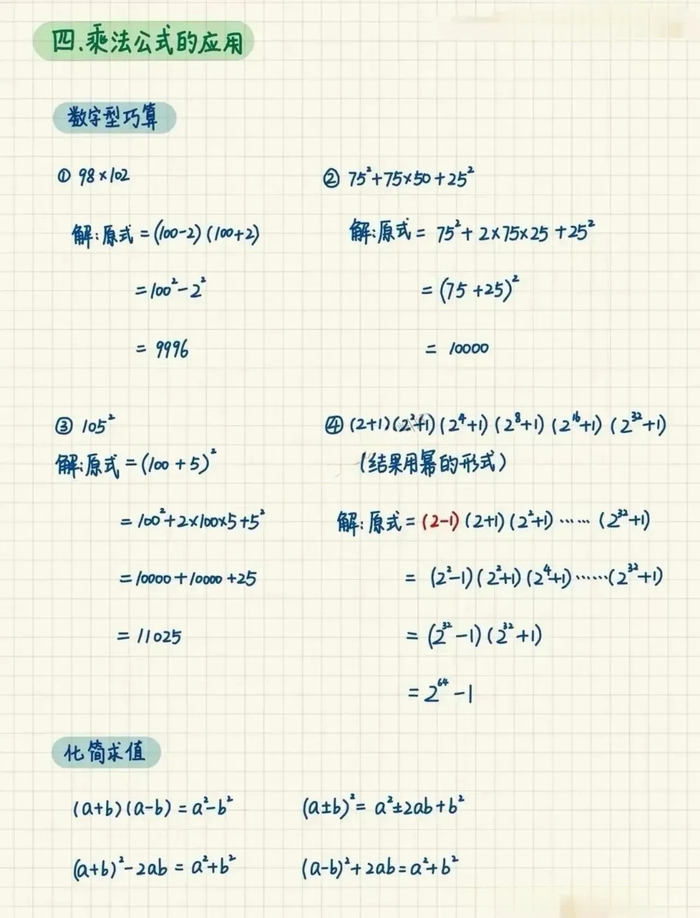 四.乘法公式的应用
数字型巧算
① 98×102
解:原式=(100-2)(100+2)
=100²-2²
= 9996
② 75²+75×50+25²
解:原式= 75²+2×75×25+25²
= (75+25)²
= 10000
③ 105²
解:原式=(100+5)²
=100²+2×100×5+5²
=10000+10000+25
= 11025
④ (2+1)(2²+1)(2⁴+1)(2⁸+1)(2¹⁶+1)(2³²+1)
(结果用幂的形式)
解:原式=(2-1)(2+1)(2²+1)……(2³²+1)
= (2²-1)(2²+1)(2⁴+1)……(2³²+1)
= (2³²-1)(2³²+1)
= 2⁶⁴-1
化简求值
(a+b)(a-b)=a²-b²
(a±b)²= a²±2ab+b²
(a+b)²-2ab = a²+b²
(a-b)²+2ab=a²+b²